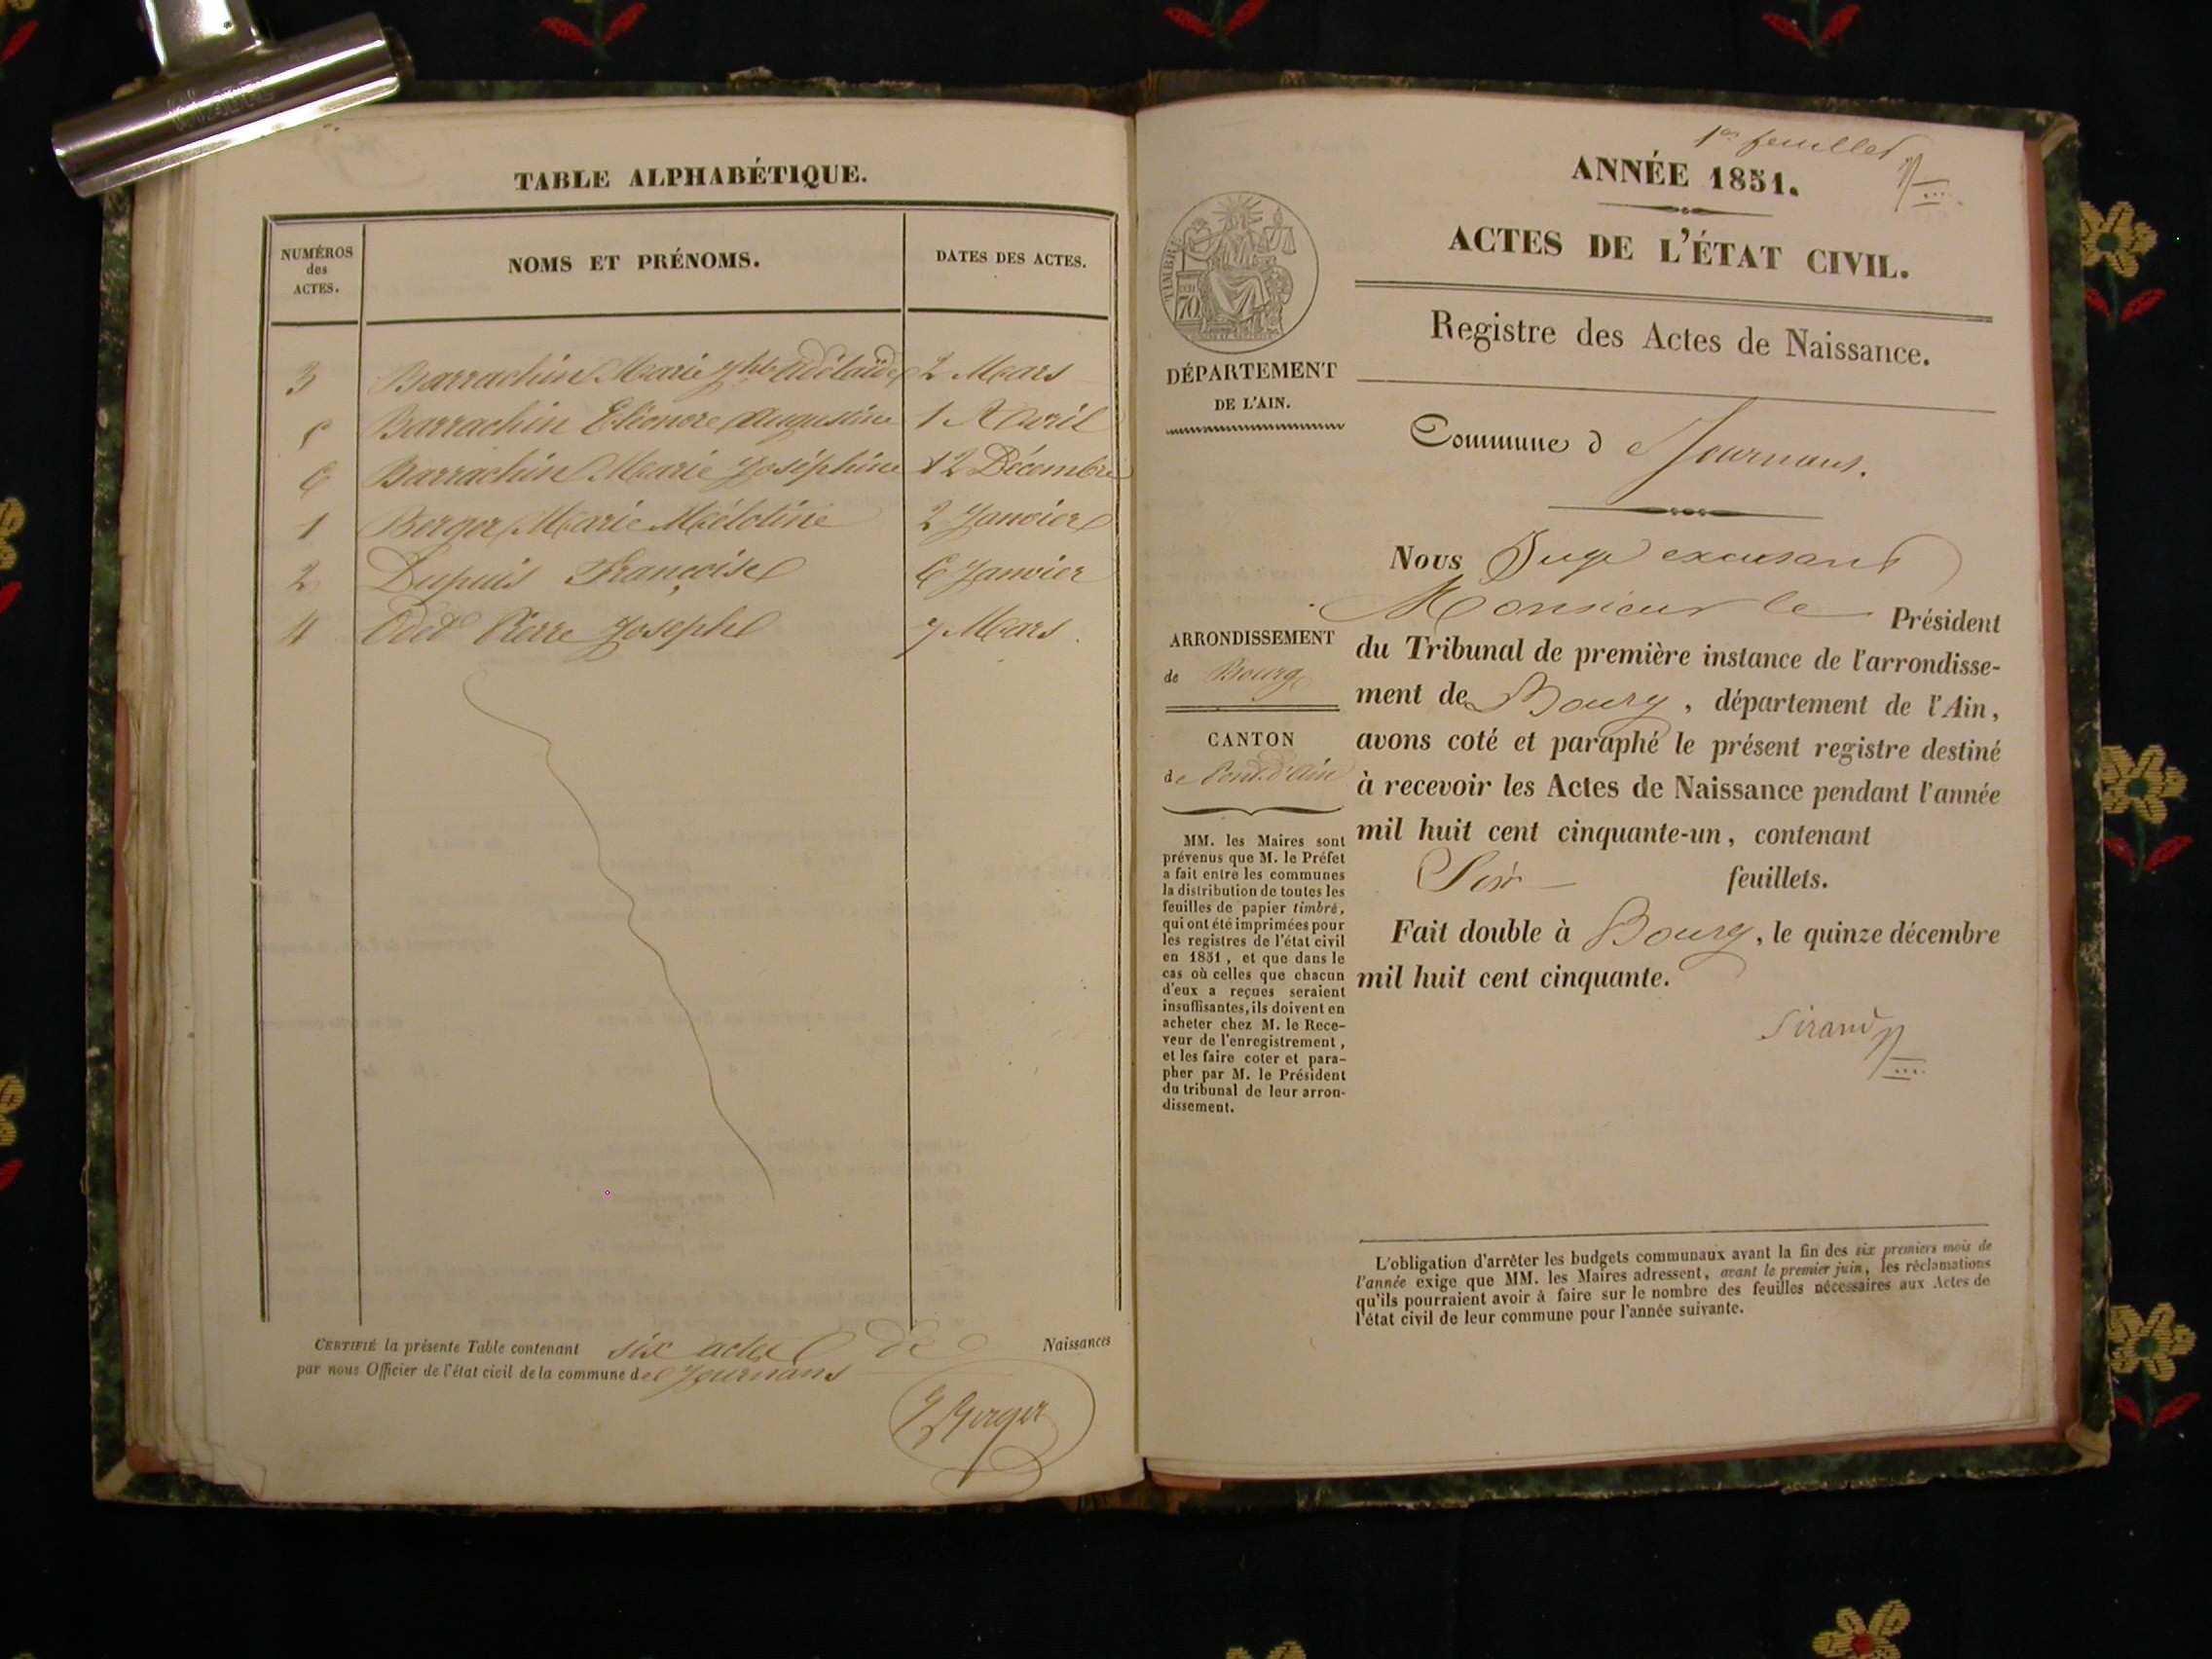 TABLE ALPHABÉTIQUE.
NUMÉROS
des
ACTES.
NOMS ET PRÉNOMS.
DATES DES ACTES.
3 Barrachin Marie Jphte Adélaïde 2 Mars
5 Barrachin Eléonore Augustine 1 Avril
6 Barrachin Marie Joséphine 12 Décembre
1 Berger Marie 2 Janvier
2 Dupuis Françoise 6 Janvier
4 Odet Pierre Joseph 7 Mars
CERTIFIÉ la présente Table contenant six actes de Naissances
par nous Officier de l'état civil de la commune de Journans
J Berger
1er feuillet
ANNÉE 1851.
ACTES DE L'ÉTAT CIVIL.
Registre des Actes de Naissance.
TIMBRE
70
DÉPARTEMENT
DE L'AIN.
Commune de Journans.
Nous Juge excusant
Monsieur le Président
du Tribunal de première instance de l'arrondisse-
ment de Bourg, département de l'Ain,
avons coté et paraphé le présent registre destiné
à recevoir les Actes de Naissance pendant l'année
mil huit cent cinquante-un, contenant
Six feuillets.
Fait double à Bourg, le quinze décembre
mil huit cent cinquante.
Sirand
ARRONDISSEMENT
de Bourg
CANTON
de Pont d'Ain
MM. les Maires sont
prévenus que M. le Préfet
a fait entre les communes
la distribution de toutes les
feuilles de papier timbré,
qui ont été imprimées pour
les registres de l'état civil
en 1851, et que dans le
cas où celles que chacun
d'eux a reçues seraient
insuffisantes, ils doivent en
acheter chez M. le Rece-
veur de l'enregistrement,
et les faire coter et para-
pher par M. le Président
du tribunal de leur arron-
dissement.
L'obligation d'arrêter les budgets communaux avant la fin des six premiers mois de
l'année exige que MM. les Maires adressent, avant le premier juin, les réclamations
qu'ils pourraient avoir à faire sur le nombre des feuilles nécessaires aux Actes de
l'état civil de leur commune pour l'année suivante.